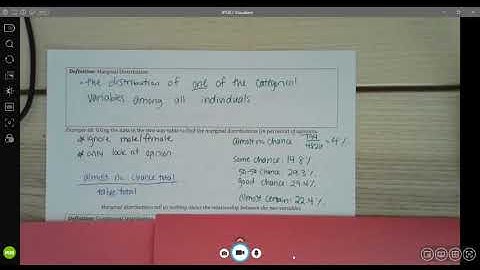 Definition: Marginal Distribution
- the distribution of one of the categorical
variables among all individuals
Using the data in the two-way table to find the marginal distributions (in percents) of opinions.
* ignore male/female
* only look at opinion
almost no chance total
table total
almost no chance: 194
4826 = 4%
some chance: 14.8%
50-50 chance: 29.3%
good chance: 29.4%
almost certain: 22.4%
Marginal distributions tell us nothing about the relationship between the two variables.